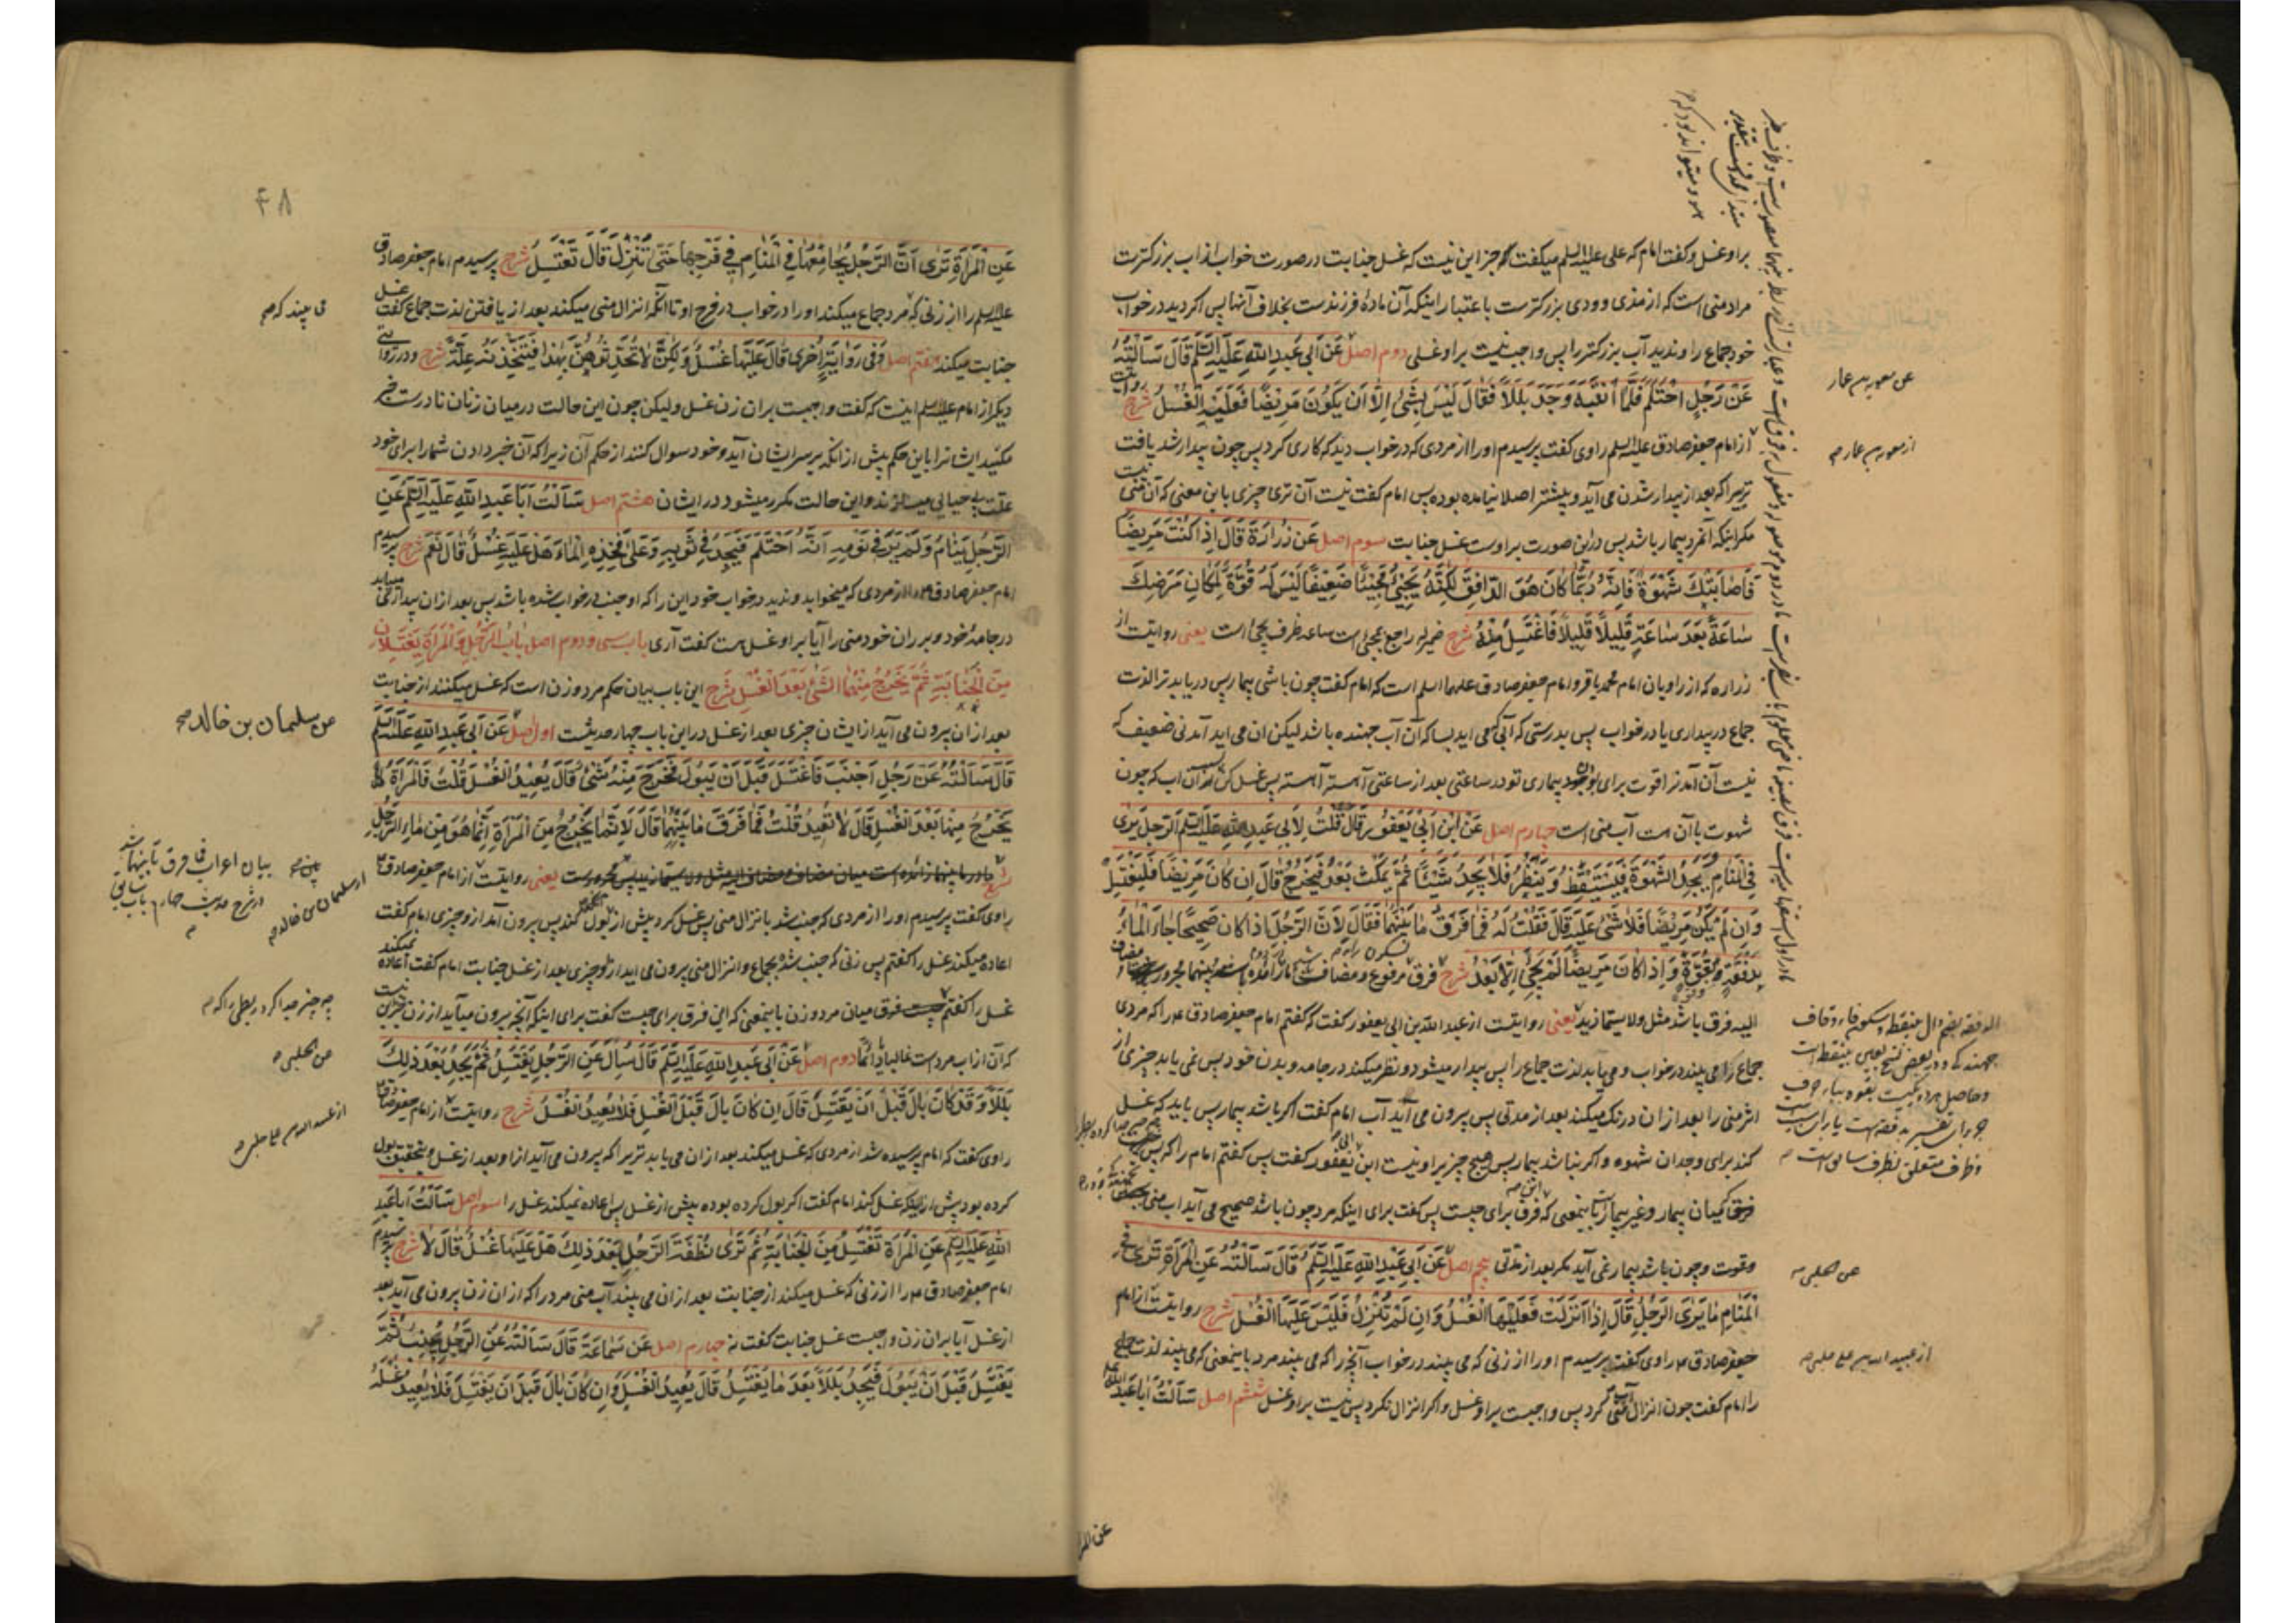 براو غسل و گفت امام که علی علیه السلم میکفت که جز این نیست که غسل جنابت در صورت خواب از اب بزرکترست
مراد منی است که از مذی و ودی بزرکترست باعتبار اینکه آن مادهٔ فرزندست بخلاف آنها پس اگر دید در خواب
خود جماع را و ندید آب بزرکتر را پس واجب نیست براو غسلی دوم اصل عَن اَبی عَبدِ اللهِ عَلَیهِ السَّلم قَالَ سَاَلتُهُ
عَن رَجُلٍ احتَلَمَ فَلَمَّا انتَبَهَ وَجَدَ بَلَلاً فَقَالَ لَیسَ بِشَیءٍ اِلّا اَن یَکُونَ مَرِیضًا فَعَلَیهِ الغُسلُ شرح روایتست
از امام جعفر صادق علیه السلم راوی گفت پرسیدم او را از مردی که در خواب دید که کاری کرد پس چون بیدار شد یافت
تریرا که بعد از بیدار شدن می آید و پیشتر اصلا نیامده بوده پس امام گفت نیست آن تری چیزی باین معنی که آن منی نیست
مکر اینکه آنمرد بیمار باشد پس در این صورت براوست غسل جنابت سوم اصل عَن زُرَارَةَ قَالَ اِذَا کُنتَ مَرِیضًا
فَاَصَابَتکَ شَهوَةٌ فَاِنَّهُ رُبَّمَا کَانَ هُوَ الدَّافِقَ لٰکِنَّهُ یَجِیءُ مَجِیئًا ضَعِیفًا لَیسَ لَهُ قُوَّةٌ لِمَکَانِ مَرَضِکَ
سَاعَةً بَعدَ سَاعَةٍ قَلِیلاً قَلِیلاً فَاغتَسِل مِنهُ شرح ضمیر له راجع بمجیء است ساعة ظرف یجیء است یعنی روایتست از
زراره که از راویان امام محمد باقر و امام جعفر صادق علیهما السلم است که امام گفت چون باشی بیمار پس دریابد ترا لذت
جماع در بیداری یا در خواب پس بدرستی که آبی که می آید بسا که آن آب جهنده باشد لیکن ان می اید آمدنی ضعیف که
نیست آن آمدنرا قوت برای بودن بیماری تو در ساعتی بعد از ساعتی آهسته آهسته پس غسل کن از آن اب که چون
شهوت با آن است آب منی است چهارم اصل عَن ابنِ اَبی یَعفُورٍ قَالَ قُلتُ لِاَبی عَبدِ اللهِ عَلَیهِ السَّلم الرَّجُلُ یَرٰی
فِی المَنَامِ وَیَجِدُ الشَّهوَةَ فَیَستَیقِظُ وَیَنظُرُ فَلَا یَجِدُ شَیئًا ثُمَّ یَمکُثُ بَعدُ فَیَخرُجُ قَالَ اِن کَانَ مَرِیضًا فَلیَغتَسِل
وَاِن لَم یَکُن مَرِیضًا فَلَا شَیءَ عَلَیهِ قَالَ فَقُلتُ لَهُ فَمَا فَرقُ مَا بَینَهُمَا فَقَالَ لِاَنَّ الرَّجُلَ اِذَا کَانَ صَحِیحًا جَاءَ المَاءُ
بِدُفقَةٍ وَقُوَّةٍ وَاِذَا کَانَ مَرِیضًا لَم یَجِئ اِلّا بَعدُ شرح فرق مرفوع و مضاف است ما زائده بینهما مجرور مضاف
الیه فرق باشد مثل ولاسیّما زید یعنی روایتست از عبدالله بن ابی یعفور گفت که گفتم امام جعفر صادق ع را که مردی
جماع را می بیند در خواب و می یابد لذت جماع را پس بیدار میشود و نظر میکند در جامه و بدن خود پس نمی یابد چیزی از
اثر منی را بعد از ان درنک میکند بعد از مدتی پس بیرون می آید آب امام گفت اکر باشد بیمار پس باید که غسل
کند برای وجدان شهوه و اکر نباشد بیمار پس هیچ چیز بر او نیست ابن ابی یعفور گفت پس گفتم امام را که پس
میان بیمار و غیر بیمار باینمعنی که این فرق برای چیست پس گفت برای اینکه مرد چون باشد صحیح می آید اب منی
وقوت و چون باشد بیمار نمی آید مکر بعد از مدّتی پنجم اصل عَن اَبی عَبدِ اللهِ عَلَیهِ السَّلم قَالَ سَاَلتُهُ عَنِ المَراَةِ تَرٰی فِی
المَنَامِ مَا یَرَی الرَّجُلُ قَالَ اِذَا اَنزَلَت فَعَلَیهَا الغُسلُ وَاِن لَم تُنزِل فَلَیسَ عَلَیهَا الغُسلُ شرح روایتست از امام
جعفر صادق ع راوی گفت پرسیدم او را از زنی که می بیند در خواب آنچه را که می بیند مرد باینمعنی که می بیند لذت جماع
را امام گفت چون انزال آب منی کرد پس واجبست براو غسل و اکر انزال نکرد پس نیست براو غسل ششم اصل سَاَلتُ اَبَا عَبدِ اللهِ
عن معویه بن عمار
از معویه بن عمار صح
عن الحلبی صح
از عبید الله بن علی حلبی صح
عن المر
۴۸
عَنِ المَراَةِ تَرٰی اَنَّ الرَّجُلَ یُجَامِعُهَا فِی المَنَامِ فِی فَرجِهَا حَتّٰی تُنزِلَ قَالَ تَغتَسِلُ شرح پرسیدم امام جعفر صادق
علیه السلم را از زنی که مرد جماع میکند او را در خواب در فرج او تا آنکه انزال منی میکند بعد از یافتن لذت جماع گفت غسل
جنابت میکند هفتم اصل وَفِی رِوَایَةٍ اُخرٰی قَالَ عَلَیهَا غُسلٌ وَلٰکِن لَا تُحَدِّثُوهُنَّ بِهٰذَا فَیَتَّخِذنَهُ عِلَّةً شرح و در روایتی
دیکر از امام علیه السلم اینست که گفت واجبست بران زن غسل و لیکن چون این حالت در میان زنان نادرست خبر
مکنید ایشانرا باین حکم پیش از انکه بر سر ایشان آید و خود سوال کنند از حکم آن زیرا که آن خبر دادن شما را برای خود
علّت بی حیایی میسازند و این حالت مکرر میشود در ایشان هشتم اصل سَاَلتُ اَبَا عَبدِ اللهِ عَلَیهِ السَّلم عَنِ
الرَّجُلِ یَنَامُ وَلَم یَرَ فِی نَومِهِ اَنَّهُ احتَلَمَ فَیَجِدُ فِی ثَوبِهِ وَعَلٰی فَخِذِهِ المَاءَ هَل عَلَیهِ غُسلٌ قَالَ نَعَم شرح پرسیدم
امام جعفر صادق ع را از مردی که میخوابد و ندید در خواب خود این را که او جنب در خواب شده باشد پس بعد از ان بیداری مییابد
در جامهٔ خود و بر ران خود منی را آیا براو غسل هست گفت آری باب سی و دوم اصل بَابُ الرَّجُلِ وَالمَراَةِ یَغتَسِلَانِ
مِنَ الجَنَابَةِ ثُمَّ یَخرُجُ مِنهُمَا الشَّیءُ بَعدَ الغُسلِ شرح این باب بیان حکم مرد و زن است که غسل میکنند از جنابت
بعد از ان بیرون می آید از ایشان چیزی بعد از غسل در این باب چهار حدیثست اول اصل عَن اَبی عَبدِ اللهِ عَلَیهِ السَّلم
قَالَ سَاَلتُهُ عَن رَجُلٍ اَجنَبَ فَاغتَسَلَ قَبلَ اَن یَبُولَ فَخَرَجَ مِنهُ شَیءٌ قَالَ یُعِیدُ الغُسلَ قُلتُ فَالمَراَةُ
یَخرُجُ مِنهَا بَعدَ الغُسلِ قَالَ لَا تُعِیدُ قُلتُ فَمَا فَرقُ مَا بَینَهُمَا قَالَ لِاَنَّ مَا یَخرُجُ مِنَ المَراَةِ اِنَّمَا هُوَ مِن مَاءِ الرَّجُلِ
شرح یعنی روایتست از امام جعفر صادق ع
راوی گفت پرسیدم او را از مردی که جنب شد بانزال منی پس غسل کرد پیش از انکه بول کند پس بیرون آمد از و چیزی امام گفت
اعاده میکند غسل را گفتم پس زنی که جنب شده بجماع و انزال منی بیرون می اید از او چیزی بعد از غسل جنابت امام گفت اعاده نمیکند
غسل را گفتم فرق میان مرد و زن باینمعنی که این فرق برای چیست گفت برای اینکه آنچه بیرون میآید از زن
که آن از اب مردست غالبا یا دائما دوم اصل عَن اَبی عَبدِ اللهِ عَلَیهِ السَّلم قَالَ سُئِلَ عَنِ الرَّجُلِ یَغتَسِلُ ثُمَّ یَجِدُ بَعدَ ذٰلِکَ
بَلَلاً وَقَد کَانَ بَالَ قَبلَ اَن یَغتَسِلَ قَالَ اِن کَانَ بَالَ قَبلَ الغُسلِ فَلَا یُعِیدُ الغُسلَ شرح روایتست از امام جعفر صادق ع
راوی گفت که امام پرسیده شد از مردی که غسل میکند بعد از ان می یابد تریرا که بیرون می آید از او بعد از غسل و بتحقیق بول
کرده بود پیش از اینکه غسل کند امام گفت اکر بول کرده بوده پیش از غسل پس اعاده نمیکند غسل را سوم اصل سَاَلتُ اَبَا عَبدِ
اللهِ عَلَیهِ السَّلم عَنِ المَراَةِ تَغتَسِلُ مِنَ الجَنَابَةِ ثُمَّ تَرٰی نُطفَةَ الرَّجُلِ بَعدَ ذٰلِکَ هَل عَلَیهَا غُسلٌ قَالَ لَا شرح پرسیدم
امام جعفر صادق ع را از زنی که غسل میکند از جنابت بعد از ان می بیند آب منی مرد را که از ان زن بیرون می آید بعد
از غسل آیا بران زن واجبست غسل جنابت گفت نه چهارم اصل عَن سَمَاعَةَ قَالَ سَاَلتُهُ عَنِ الرَّجُلِ یُجنِبُ ثُمَّ
یَغتَسِلُ قَبلَ اَن یَبُولَ فَیَجِدُ بَلَلاً بَعدَ مَا یَغتَسِلُ قَالَ یُعِیدُ الغُسلَ وَاِن کَانَ بَالَ قَبلَ اَن یَغتَسِلَ فَلَا یُعِیدُ غُسلَهُ
می بیند که صح
عن سلیمان بن خالد صح
از سلیمان بن خالد صح
عن الحلبی صح
از عبید الله بن علی حلبی صح